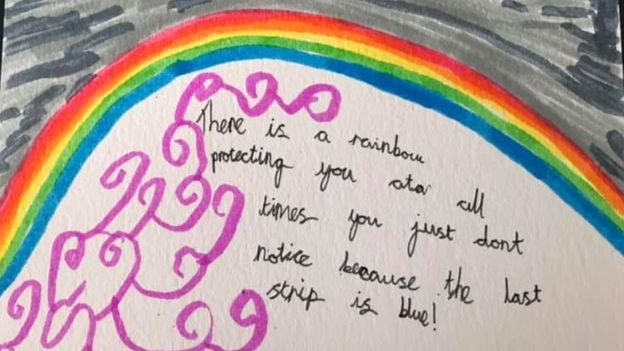 There is a rainbow
protecting you ata all
times you just dont
notice because the last
strip is blue!